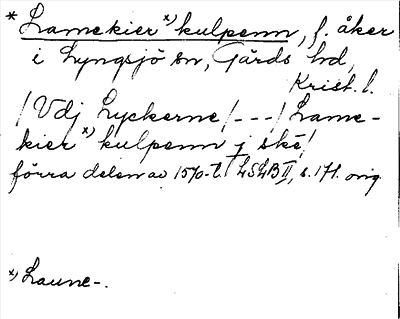 * Lamekier ˣ⁾ kulpenn, f. åker
i Lyngsjö sn, Gärds hd,
Krist. l.
/Vdj Lyckerne/ - - - /Lame-
kier ˣ⁾ kulpenn j ske/
förra delen av 1570-t. LSLB II, s. 171. orig.
ˣ⁾ Laune-.